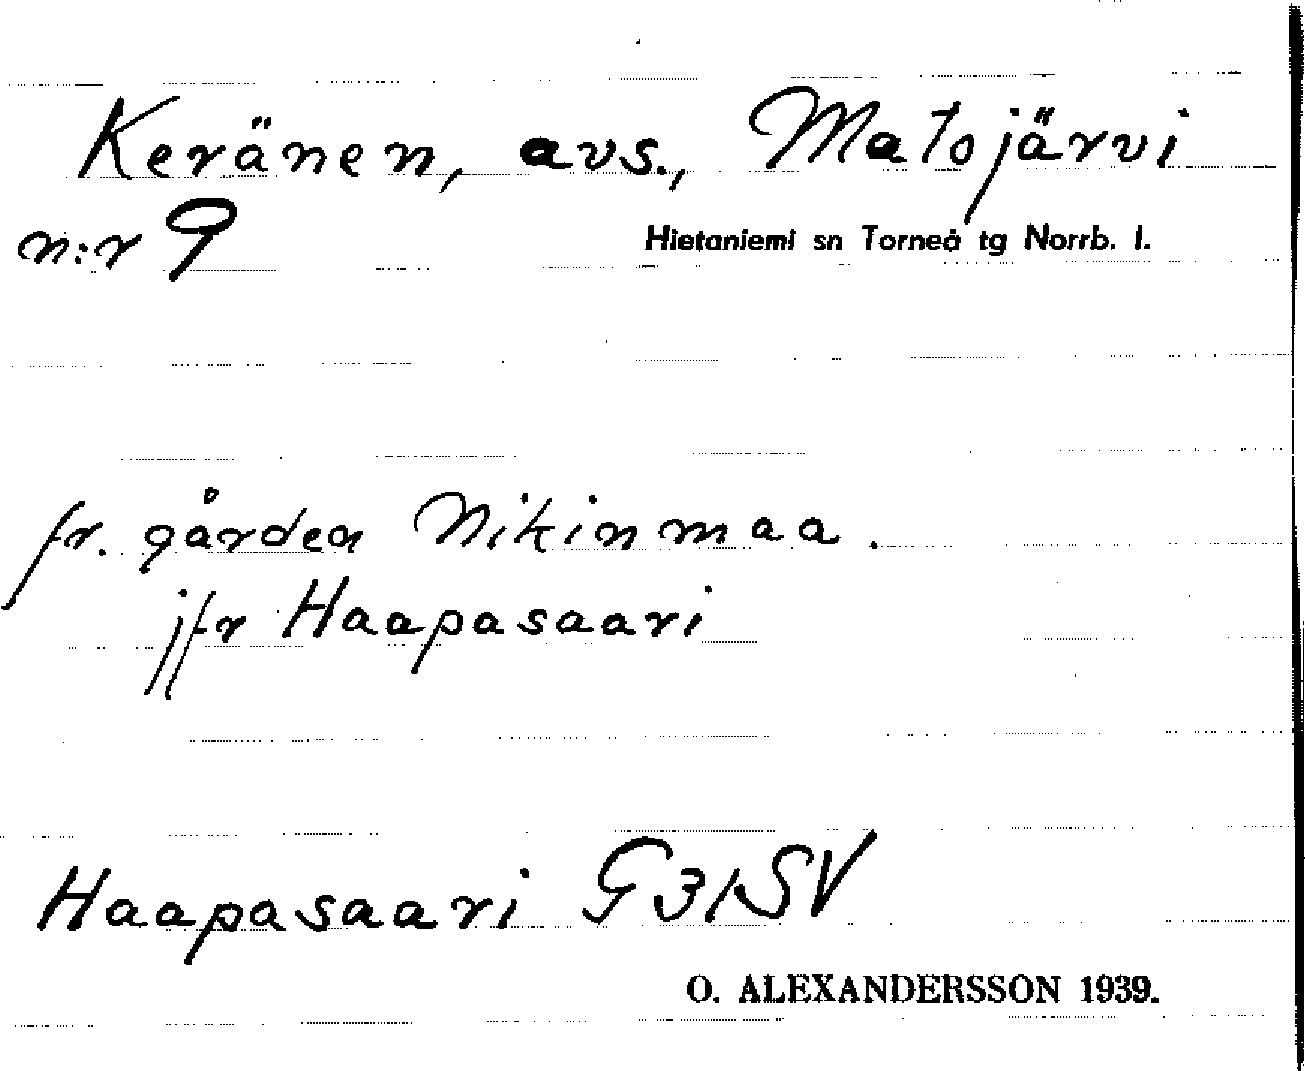 Keränen, avs., Matojärvi
n:r 9
Hietaniemi sn Torneå tg Norrb. l.
fr. gården Nikinmaa.
jfr Haapasaari
Haapasaari G31SV
O. ALEXANDERSSON 1939.